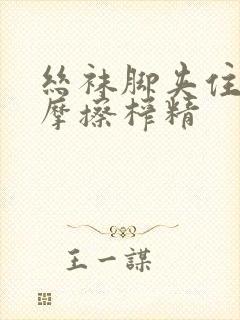 丝袜脚夹住
摩擦榨精
王一謀